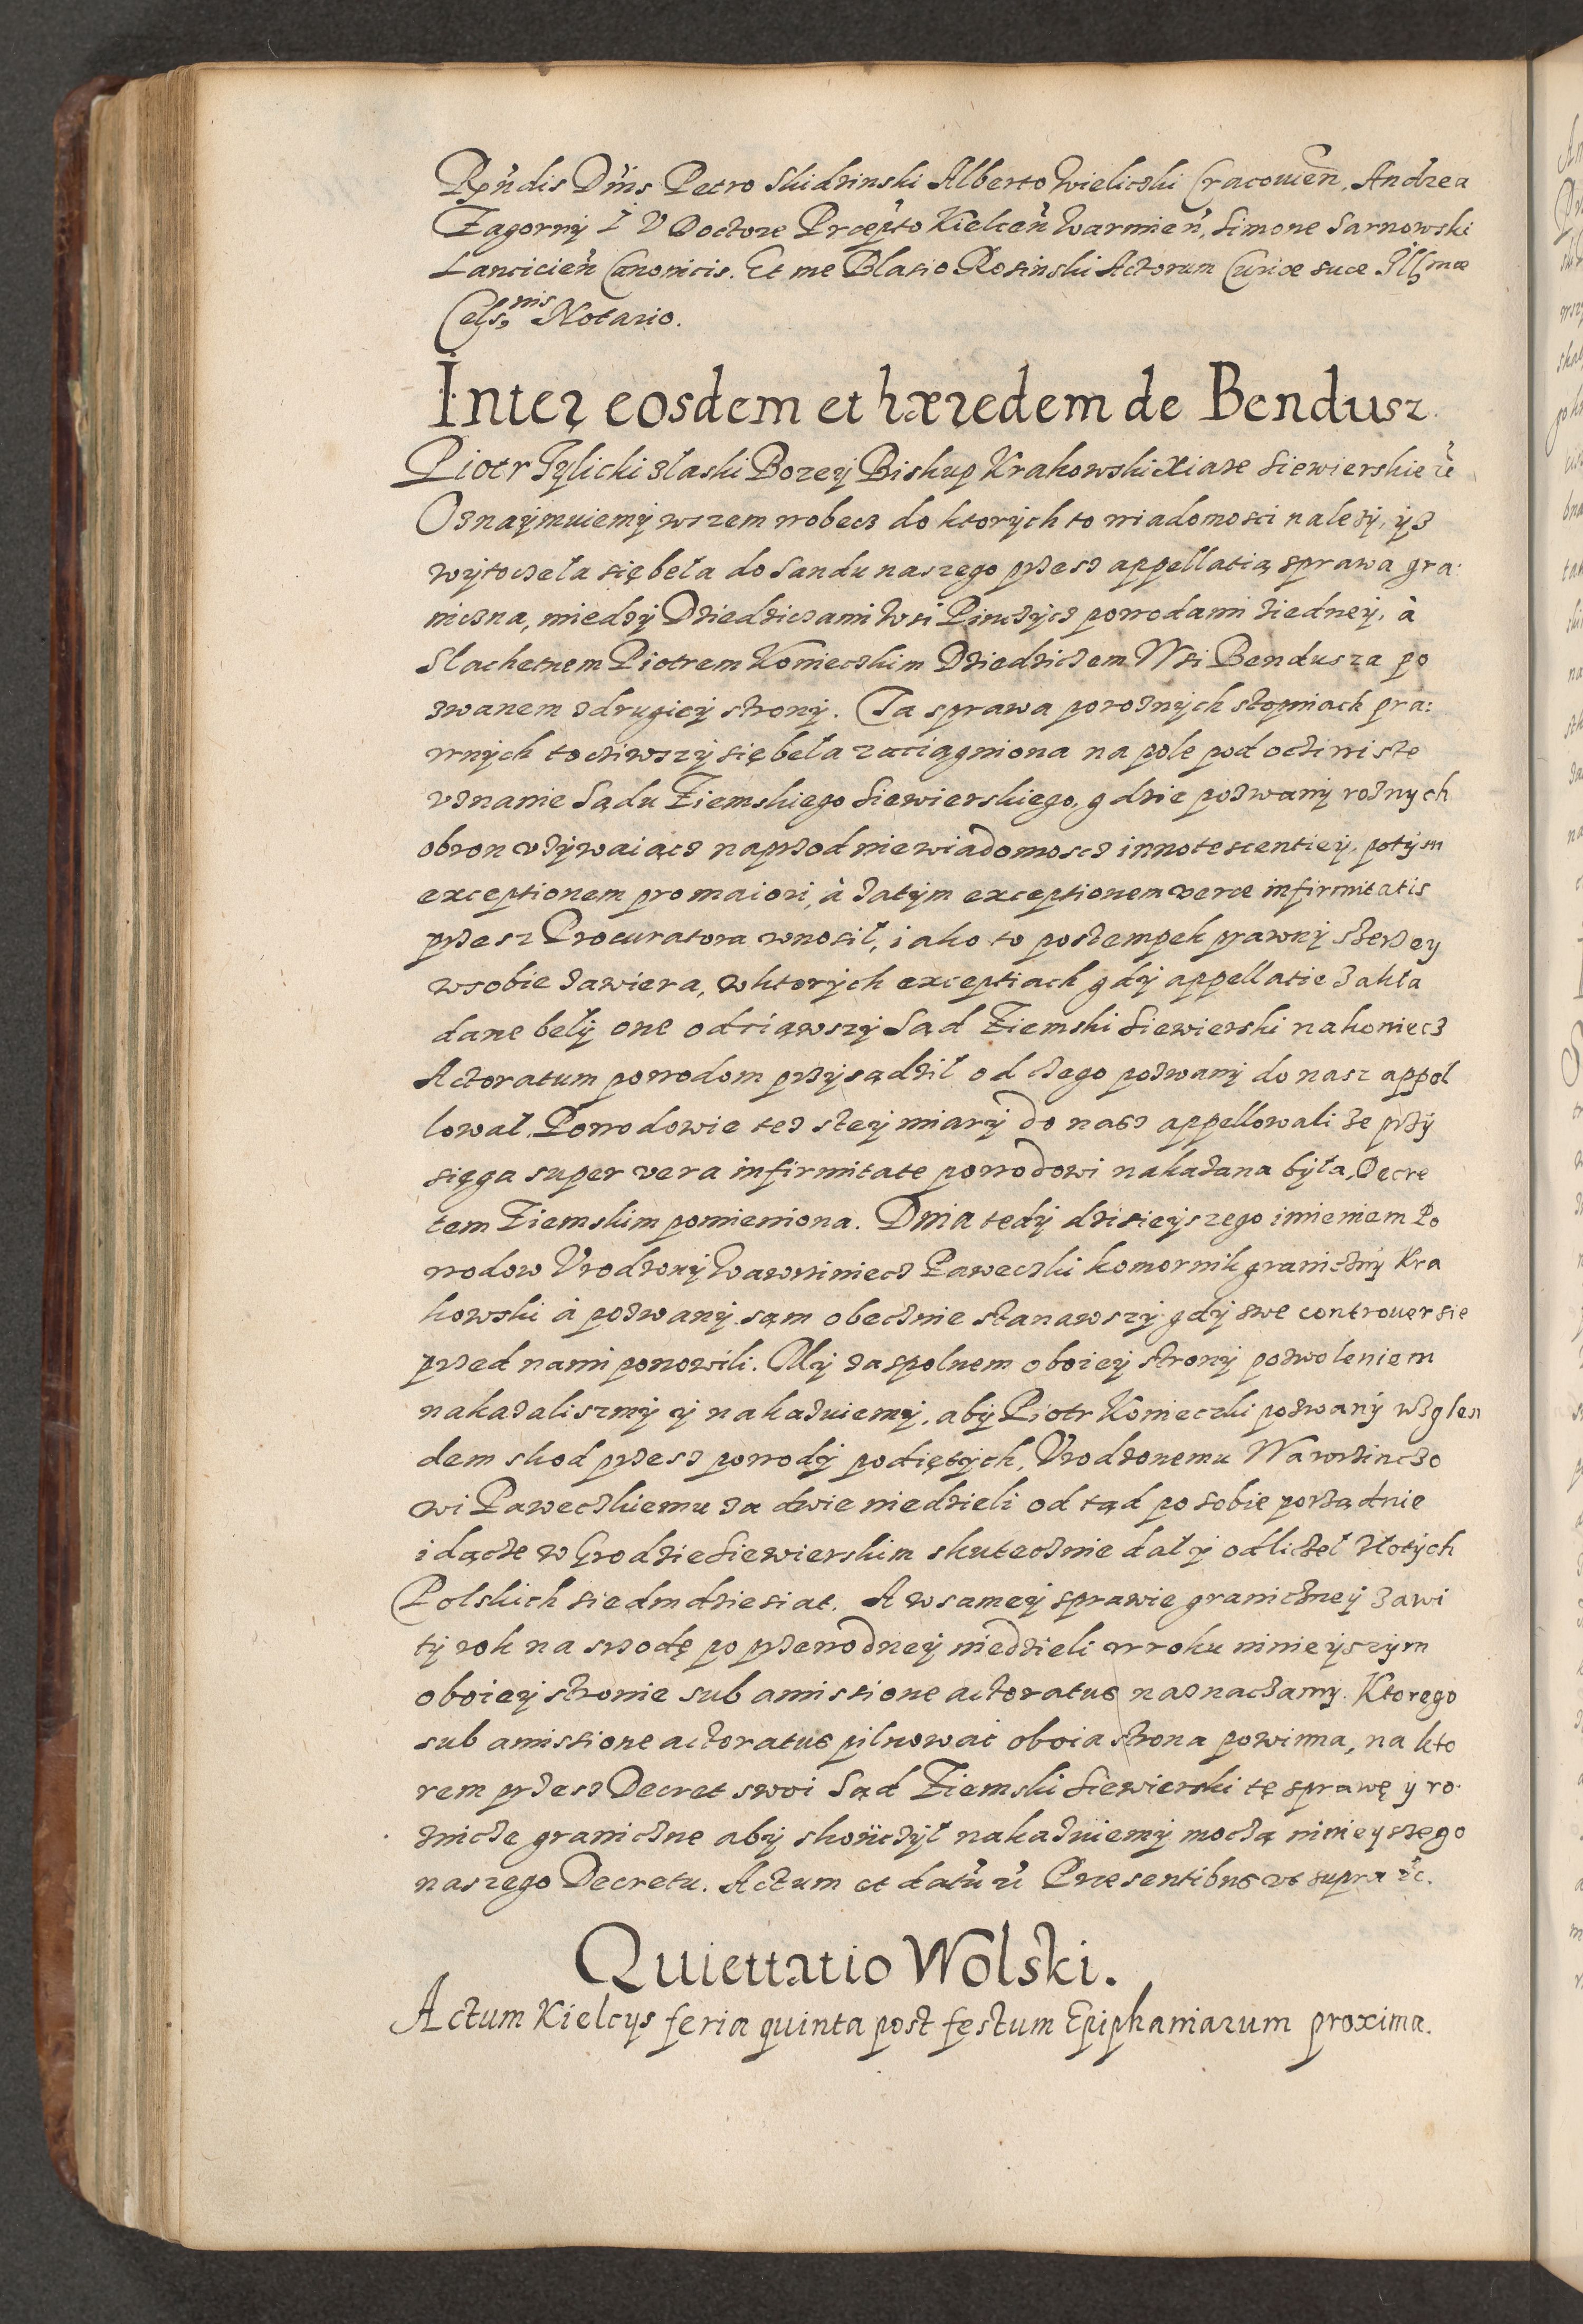 Rṽndis Dñis Petro Skidzinski Alberto Wieliczki Cracovieñ. Andrea
Zagorny I V Doctore Præpto Kielceñ Warmieñ, Simone Sarnowski
Lancicieñ Canonicis. Et me Blasio Rosinski Actorum Curiæ suæ Illmæ
Cels.nis Notario.
Inter eosdem et hæredem de Bendusz.
Piotr Tylicki zlaski Bozey Biskup Krakowski Xiaze Siewierskie &c
Oznaymuiemy wszem wobecz do ktorych to wiadomosci nalezy, yz
wytoczeła się beła do Sandu naszego przesz appellatią sprawa gra:
niczna, miedzy Dziedziczami Wsi Pinczycz powodami ziedney, à
Slachetnem Piotrem Konieczkim Dziedziczem Wsi Bendusza po
zwanem zdrugiey strony. Ta sprawa poroznych stopniach pra:
wnych tocziwszy się beła zaciągniona na pole pod ocziwiste
vznanie Sądu Ziemskiego Siewierskiego, gdzie pozwany roznych
obron vzywaiącz naprzod niewiadomoscz innotescentiey, potym
exceptionem pro maiori, à zatym exceptionem veræ infirmitatis
przesz Procuratora wnosił, iako to postempek prawny szerzey
wsobie zawiera, wktorych exceptiach gdy appellatie zakła
dane beły one odciąwszy Sąd Ziemski Siewierski nakoniecz
Actoratum powodom przysądził od czego pozwany do nasz appel
lował. Powodowie tez stey miary do nasz appellowali ze przy
sięga super vera infirmitate powodowi nakazana była, Decre
tem Ziemskim pomieniona. Dnia tedy dzisieyszego imieniem Po
wodow Vrodzony Wawrziniecz Paweczki komornik graniczny Kra
kowski à pozwany sąm obecznie stanawszy gdy swe controuersie
przed nami ponowili. My zaspolnem oboiey strony pozwoleniem
nakazaliszmy y nakazuiemy, aby Piotr Konieczki pozwany wzglen
dem skod przesz powody podiętych, Vrodzonemu Wawrzinczo
wi Paweczkiemu za dwie niedzieli od tąd po sobie porządnie
idącze w Grodzie Siewierskim skutecznie dał y odliczeł złotych
Polskich siedmdziesiat. A wsamey sprawie graniczney zawi
ty rok na srzodę po przewodney niedzieli wroku ninieyszym
oboiey stronie sub amissione actoratus naznaczamy. Ktorego
sub amissione actoratus pilnowac oboia strona powinna, na kto
rem przesz Decret swoi Sąd Ziemski Siewierski tę sprawę y ro:
znicze graniczne aby skonczył nakazuiemy moczą ninieyszego
naszego Decretu. Actum et datũ &c Præsentibus vt supra &c.
Quiettatio Wolski.
Actum Kielcys feria quinta post festum Epiphaniarum proxima.